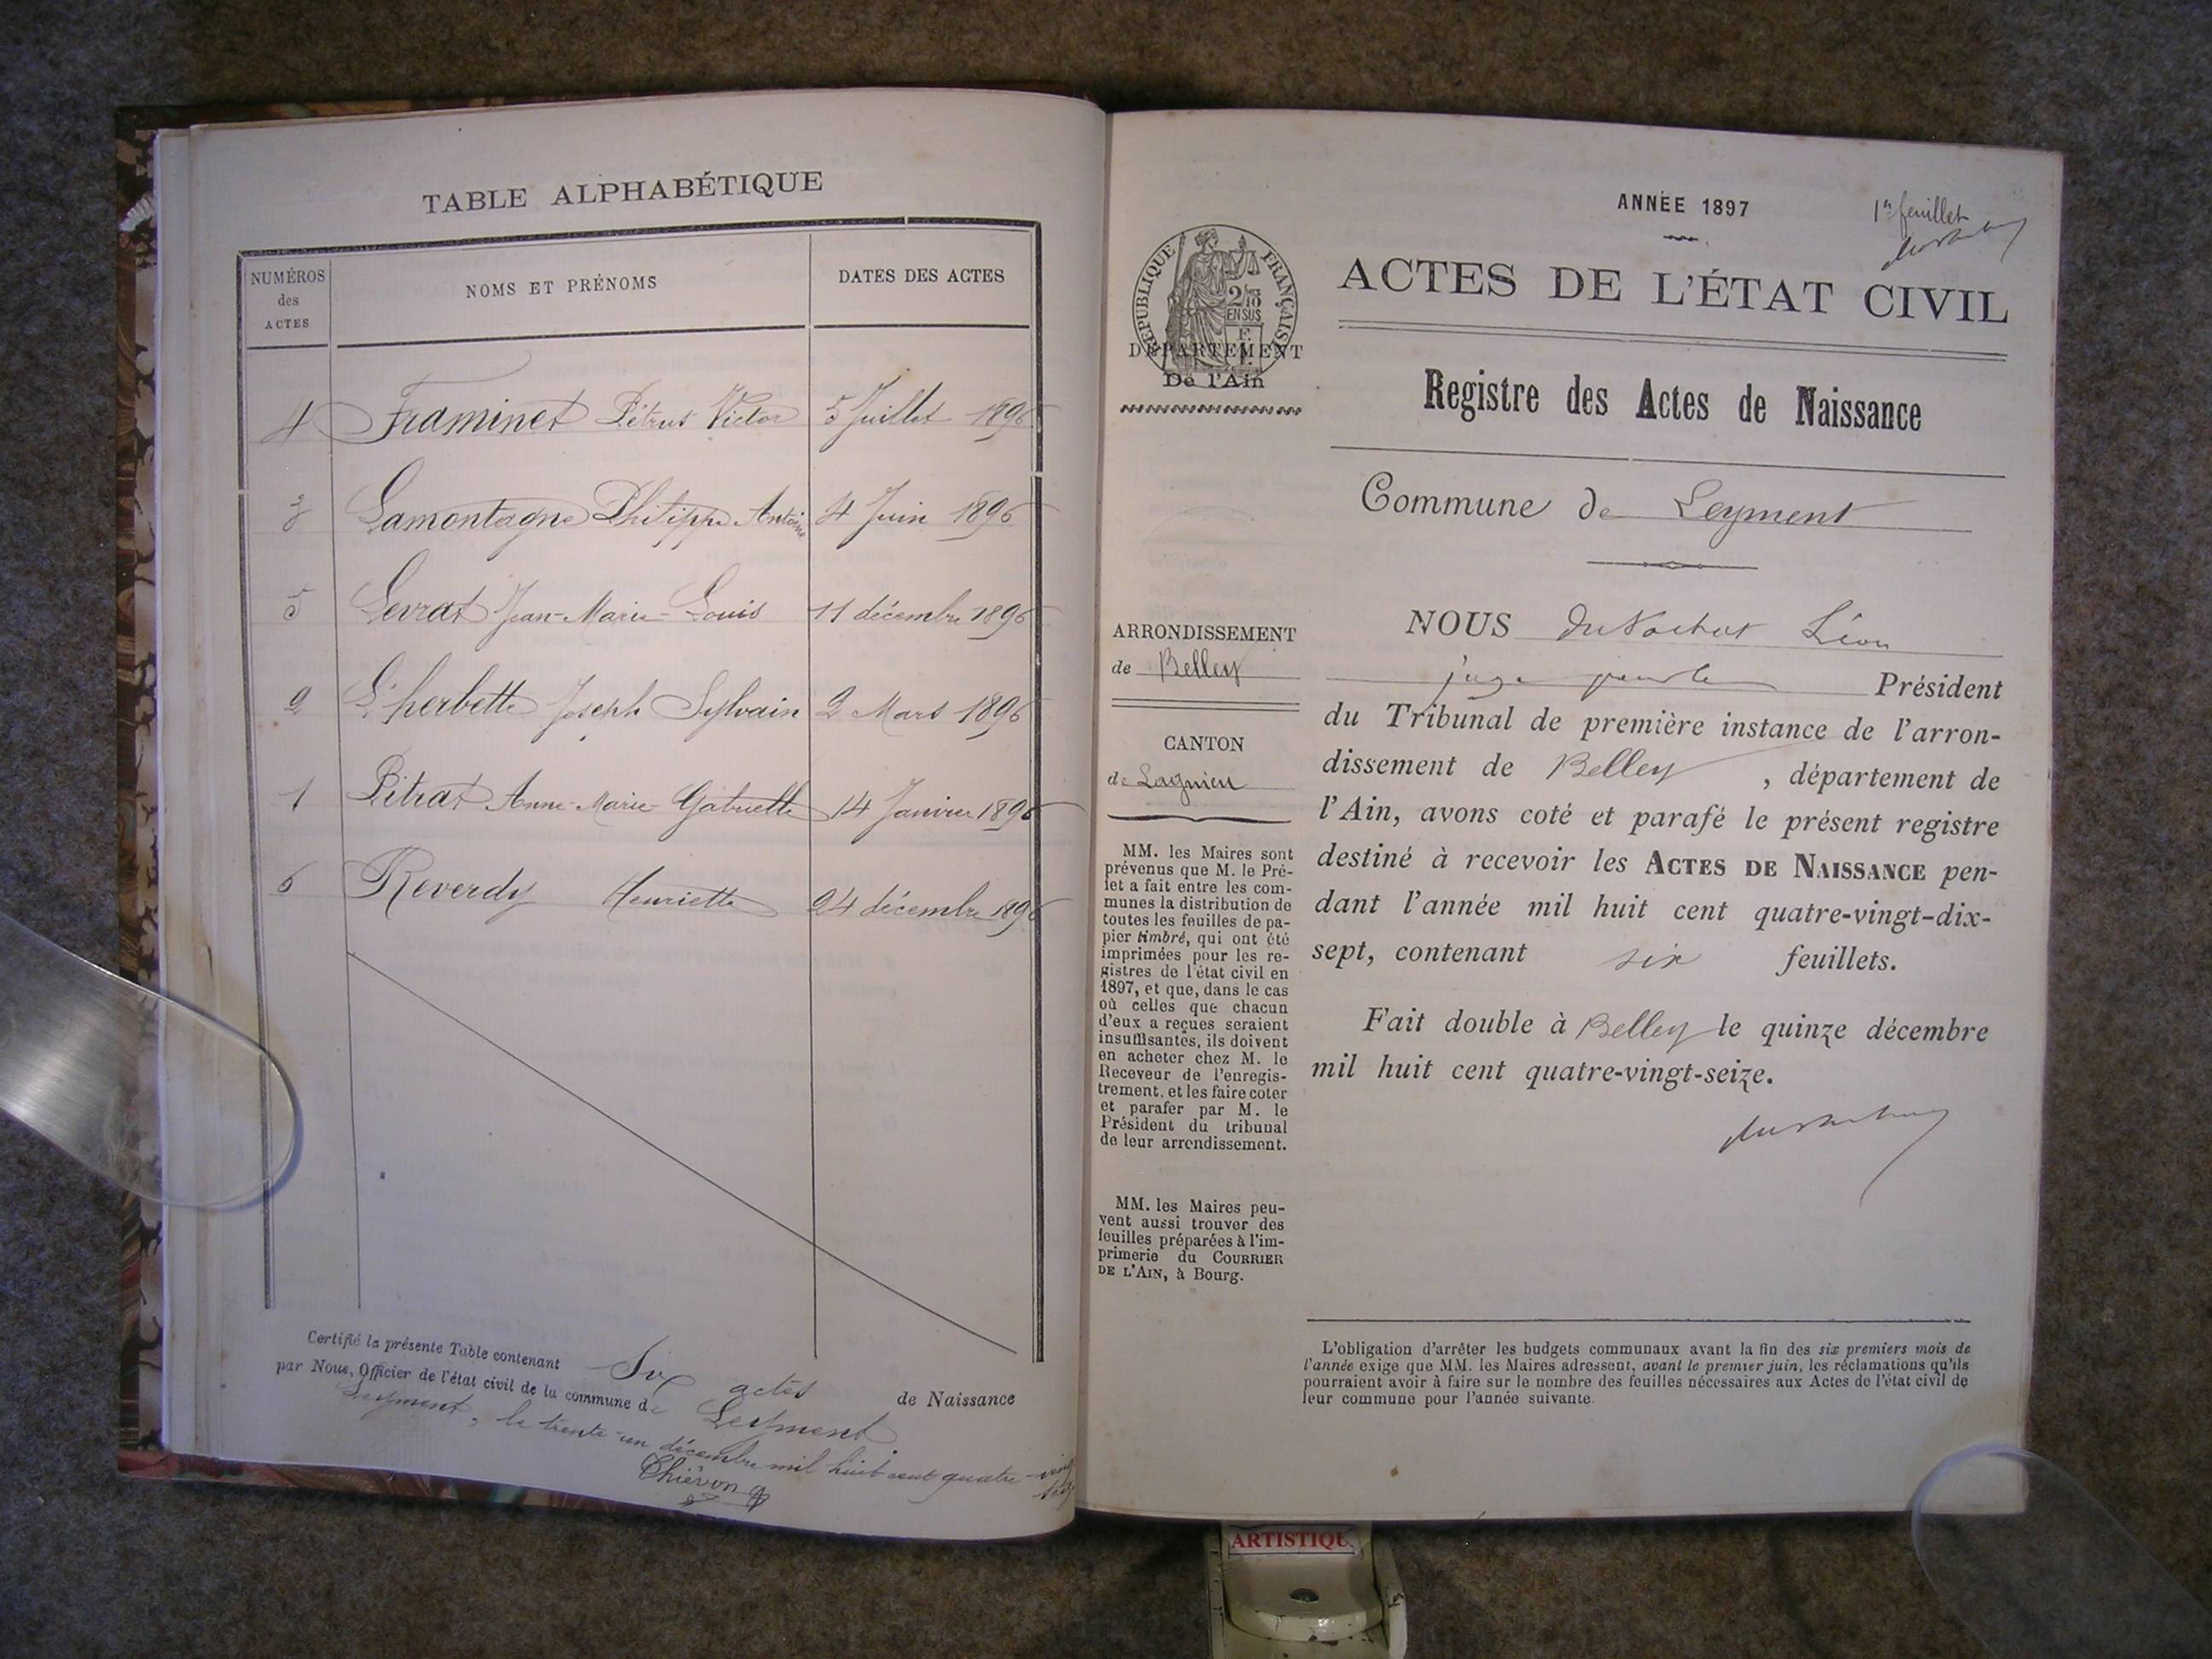 TABLE ALPHABÉTIQUE
NUMÉROS
des
ACTES
NOMS ET PRÉNOMS
DATES DES ACTES
4 Framinet Pétrus Victor 5 Juillet 1896
3 Lamontagne Philippe Antoine 4 Juin 1896
5 Levrat Jean-Marie-Louis 11 décembre 1896
2 L'herbette Joseph Sylvain 2 Mars 1896
1 Pitrat Anne-Marie-Gabrielle 14 Janvier 1896
6 Reverdy Henriette 24 décembre 1896
Certifié la présente Table contenant Six actes de Naissance
par Nous, Officier de l'état civil de la commune de Leyment
Leyment, le trente-un décembre mil huit cent quatre-vingt
Thiévon
ANNÉE 1897
1er feuillet
RÉPUBLIQUE FRANÇAISE
2/10
EN SUS
DÉPARTEMENT
De l'Ain
ACTES DE L'ÉTAT CIVIL
Registre des Actes de Naissance
Commune de Leyment
ARRONDISSEMENT
de Belley
CANTON
de Lagnieu
MM. les Maires sont
prévenus que M. le Pré-
fet a fait entre les com-
munes la distribution de
toutes les feuilles de pa-
pier timbré, qui ont été
imprimées pour les re-
gistres de l'état civil en
1897, et que, dans le cas
où celles que chacun
d'eux a reçues seraient
insuffisantes, ils doivent
en acheter chez M. le
Receveur de l'enregis-
trement, et les faire coter
et parafer par M. le
Président du tribunal
de leur arrondissement.
MM. les Maires peu-
vent aussi trouver des
feuilles préparées à l'im-
primerie du COURRIER
DE L'AIN, à Bourg.
NOUS Léon
juge Président
du Tribunal de première instance de l'arron-
dissement de Belley, département de
l'Ain, avons coté et parafé le présent registre
destiné à recevoir les ACTES DE NAISSANCE pen-
dant l'année mil huit cent quatre-vingt-dix-
sept, contenant six feuillets.
Fait double à Belley le quinze décembre
mil huit cent quatre-vingt-seize.
L'obligation d'arrêter les budgets communaux avant la fin des six premiers mois de
l'année exige que MM. les Maires adressent, avant le premier juin, les réclamations qu'ils
pourraient avoir à faire sur le nombre des feuilles nécessaires aux Actes de l'état civil de
leur commune pour l'année suivante.
ARTISTIQU